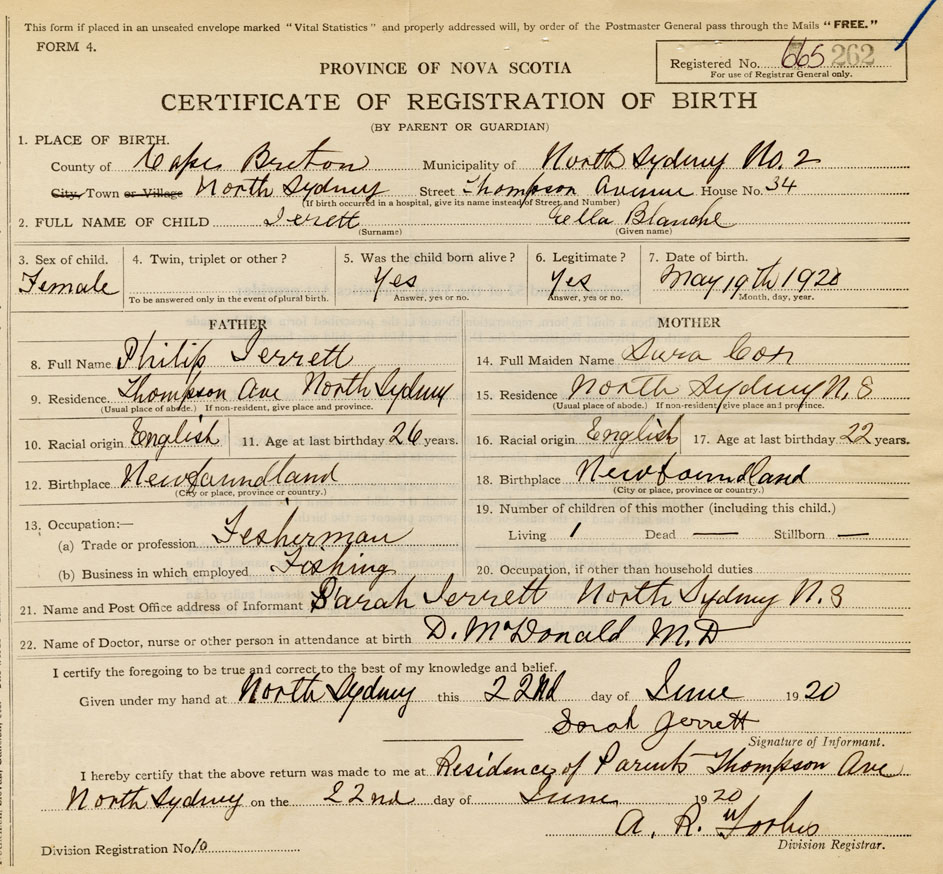 This form if placed in an unsealed envelope marked "Vital Statistics" and properly addressed will, by order of the Postmaster General pass through the Mails "FREE."
FORM 4.
Registered No. 665 262
For use of Registrar General only.
PROVINCE OF NOVA SCOTIA
CERTIFICATE OF REGISTRATION OF BIRTH
(BY PARENT OR GUARDIAN)
1. PLACE OF BIRTH.
County of Cape Breton Municipality of North Sydney No. 2
City, Town or Village North Sydney Street Thompson Avenue House No. 34
(If birth occurred in a hospital, give its name instead of Street and Number)
2. FULL NAME OF CHILD Jerrett Ella Blanche
(Surname) (Given name)
3. Sex of child. 4. Twin, triplet or other? 5. Was the child born alive? 6. Legitimate? 7. Date of birth.
Female Yes Yes May 19th 1920
To be answered only in the event of plural birth. Answer, yes or no. Answer, yes or no. Month, day, year.
FATHER MOTHER
8. Full Name Philip Jerrett 14. Full Maiden Name Sara
9. Residence. Thompson Ave North Sydney 15. Residence North Sydney N.S
(Usual place of abode.) If non-resident, give place and province. (Usual place of abode.) If non-resident, give place and province.
10. Racial origin English 11. Age at last birthday 26 years. 16. Racial origin English 17. Age at last birthday 22 years.
12. Birthplace Newfoundland 18. Birthplace Newfoundland
(City or place, province or country.) (City or place, province or country.)
13. Occupation:— 19. Number of children of this mother (including this child.)
(a) Trade or profession Fisherman Living 1 Dead — Stillborn —
(b) Business in which employed Fishing 20. Occupation, if other than household duties
21. Name and Post Office address of Informant Sarah Jerrett North Sydney N.S
22. Name of Doctor, nurse or other person in attendance at birth D. McDonald M.D
I certify the foregoing to be true and correct to the best of my knowledge and belief.
Given under my hand at North Sydney this 22nd day of June 1920
Sarah Jerrett
Signature of Informant.
I hereby certify that the above return was made to me at Residence of Parents Thompson Ave
North Sydney on the 22nd day of June 1920
A. R. Forbes
Division Registration No 10 Division Registrar.